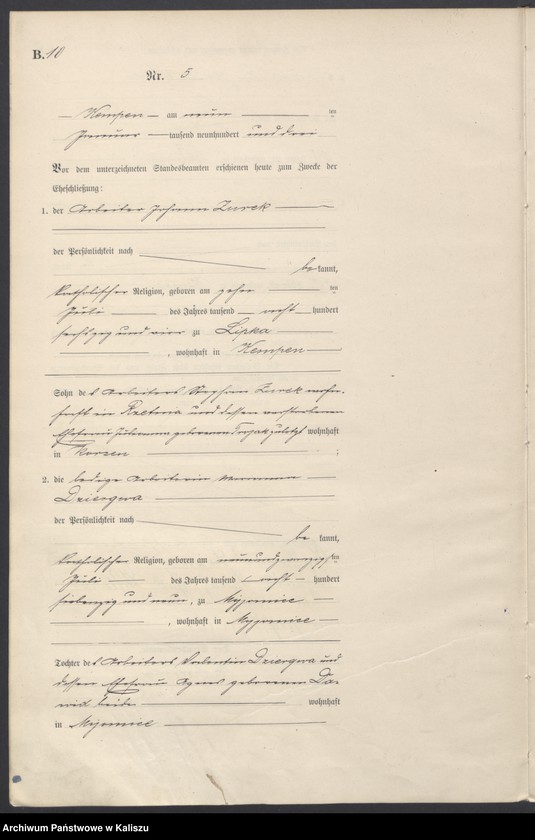 B. 10
Nr. 5
Kempen am neun ten
Januar tausend neunhundert und drei
Vor dem unterzeichneten Standesbeamten erschienen heute zum Zwecke der
Eheschließung:
1. der Arbeiter Johann Zurek
der Persönlichkeit nach
be kannt,
katholischer Religion, geboren am zehn ten
Juli des Jahres tausend acht hundert
sechszig und vier zu Lipka
, wohnhaft in Kempen
Sohn des Arbeiters Stephan Zurek wohn-
haft in und dessen verstorbenen
Ehefrau geborenen zuletzt wohnhaft
in Korzen ;
2. die ledige Arbeiterin Marianna
Dziergwa
der Persönlichkeit nach
be kannt,
katholischer Religion, geboren am neunundzwanzigsten
Juli des Jahres tausend acht hundert
siebenzig und neun, zu Myjomice
, wohnhaft in Myjomice
Tochter des Arbeiters Valentin Dziergwa und
dessen Ehefrau Agnes geborenen Da-
wid beide wohnhaft
in Myjomice
Archiwum Państwowe w Kaliszu